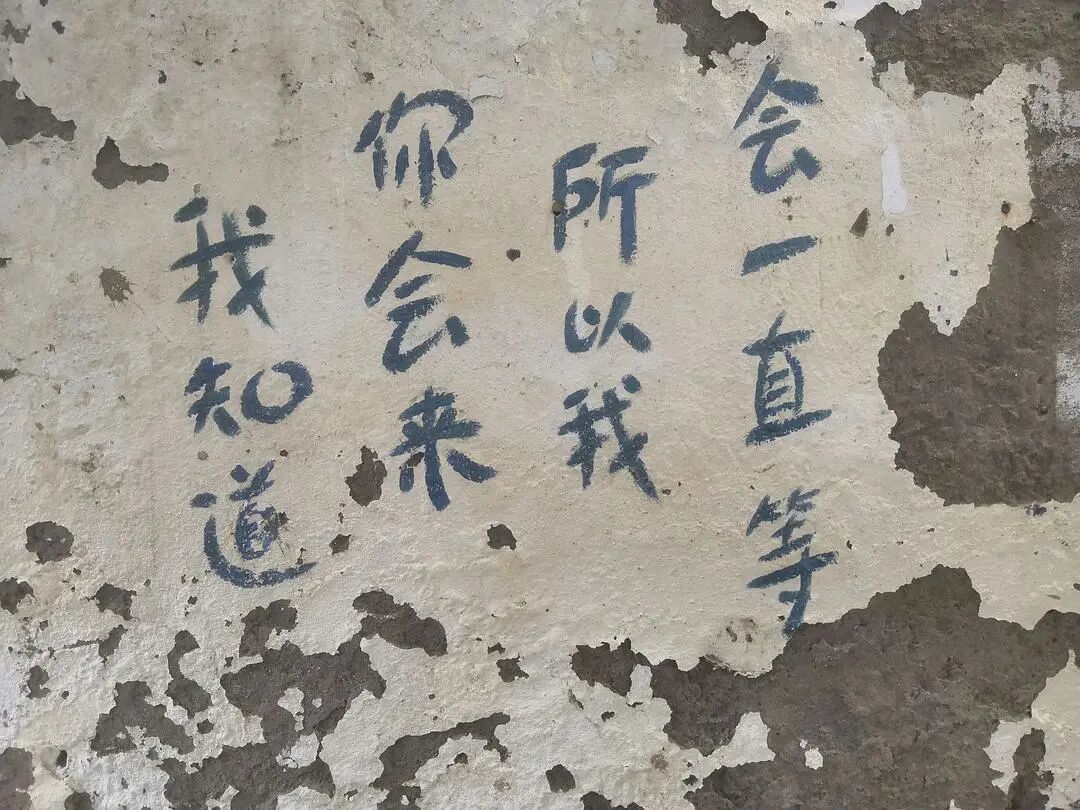 我知道
你会来
所以我
会一直等